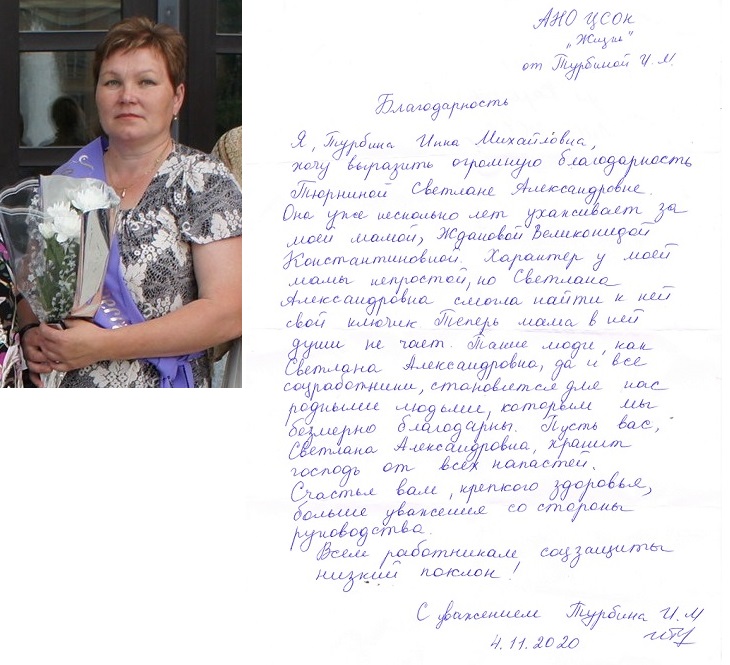 АНО ЦСОН
„Жизнь"
от Турбиной И.М.
Благодарность
Я, Турбина Инна Михайловна,
хочу выразить огромную благодарность
Тюрниной Светлане Александровне.
Она уже несколько лет ухаживает за
моей мамой, Ждановой Великонидой
Константиновной. Характер у моей
мамы непростой, но Светлана
Александровна смогла найти к ней
свой ключик. Теперь мама в ней
души не чает. Такие люди, как
Светлана Александровна, да и все
соцработники, становятся для нас
родными людьми, которым мы
безмерно благодарны. Пусть вас,
Светлана Александровна, хранит
господь от всех напастей.
Счастья вам, крепкого здоровья,
больше уважения со стороны
руководства.
Всем работникам соцзащиты
низкий поклон!
С уважением Турбина И.М
4.11.2020